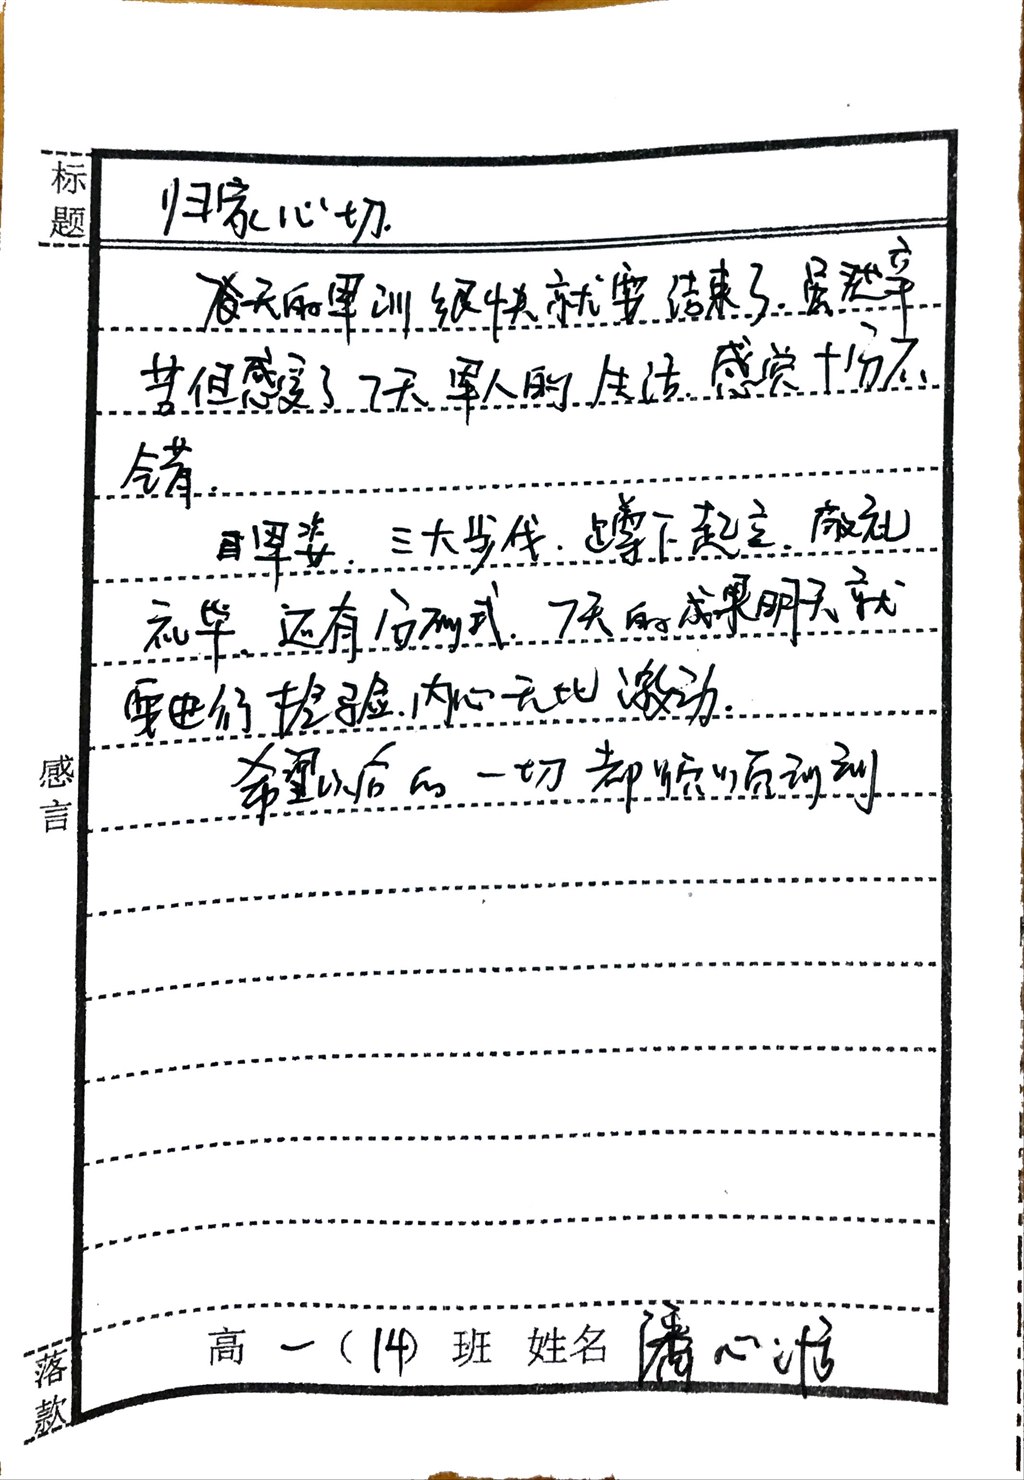 标题
归家心切.
天的军训很快就要结束了.虽然辛
苦但感受了7天军人的生活.感觉十分不
错.
军姿.三大步伐.蹲下起立.敬礼
礼毕.还有分列式.7天的成果明天就
要进行检验.内心无比激动.
希望以后的一切都顺顺利利
感言
落款
高一(14)班 姓名 潘心